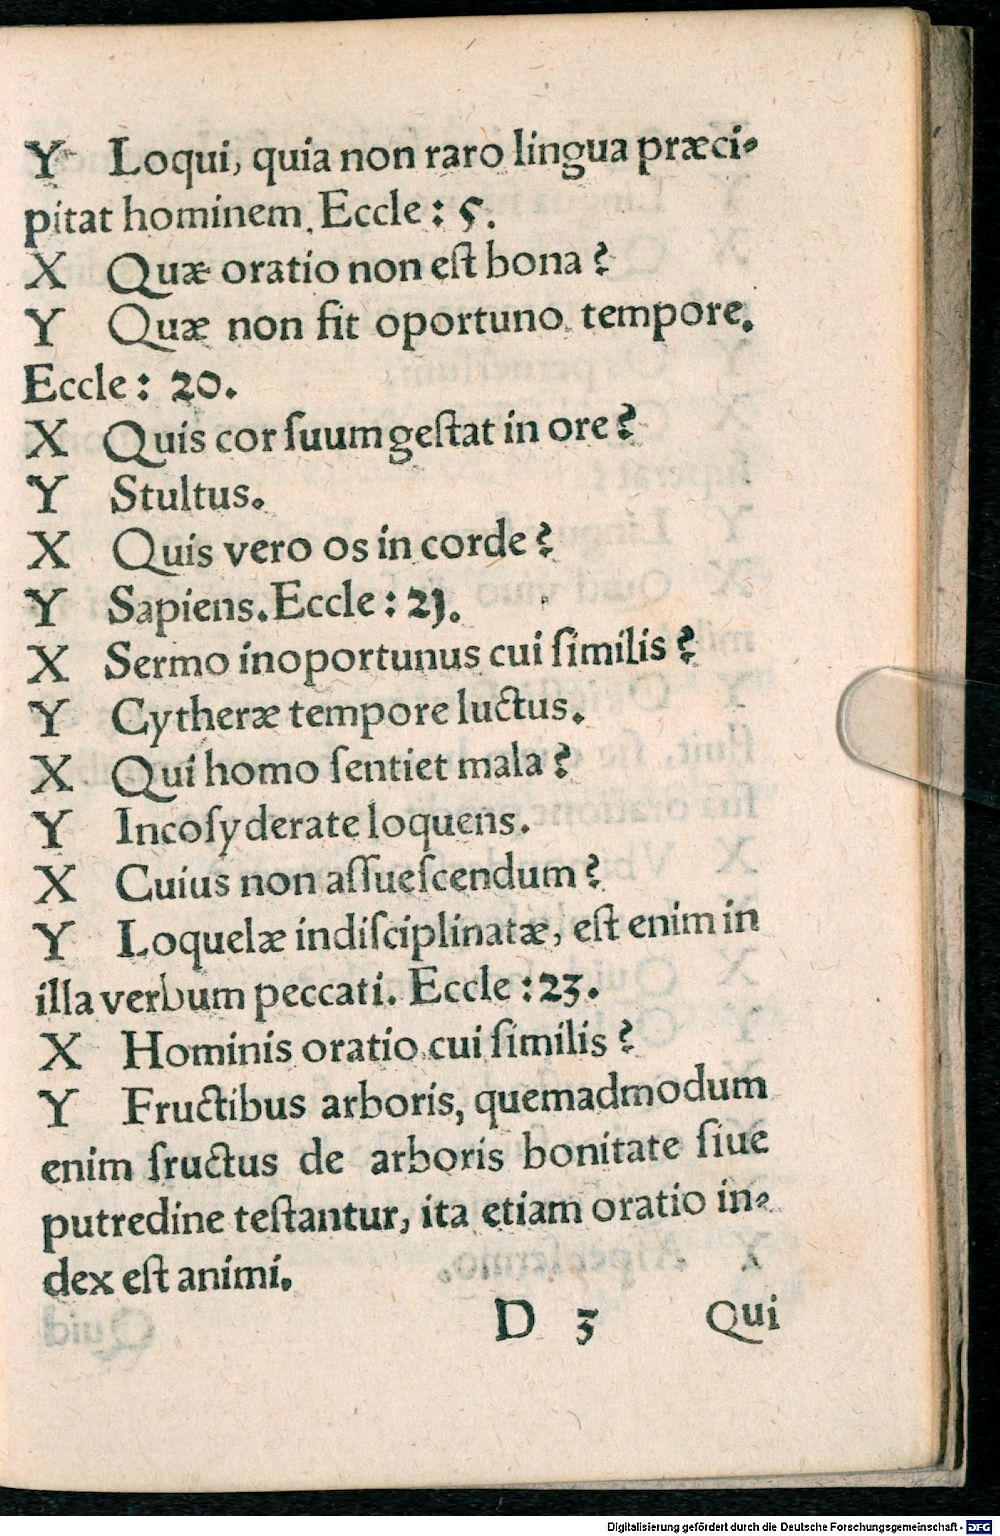 Y Loqui, quia non raro lingua præci-
pitat hominem. Eccle: 5.
X Quæ oratio non eſt bona?
Y Quæ non fit oportuno tempore.
Eccle: 20.
X Quis cor ſuum geſtat in ore?
Y Stultus.
X Quis vero os in corde?
Y Sapiens. Eccle: 21.
X Sermo inoportunus cui ſimilis?
Y Cytheræ tempore luctus.
X Qui homo ſentiet mala?
Y Incoſyderate loquens.
X Cuius non aſſueſcendum?
Y Loquelæ indiſciplinatæ, eſt enim in
illa verbum peccati. Eccle: 23.
X Hominis oratio cui ſimilis?
Y Fructibus arboris, quemadmodum
enim fructus de arboris bonitate ſiue
putredine teſtantur, ita etiam oratio in-
dex eſt animi.
D 3 Qui
Digitalisierung gefördert durch die Deutsche Forschungsgemeinschaft - DFG